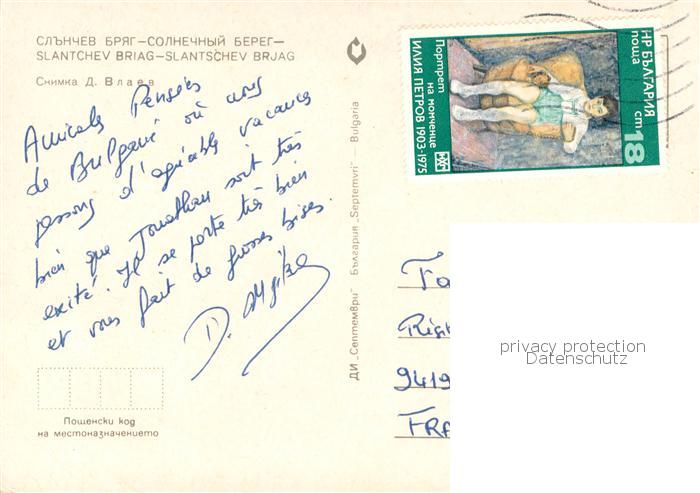 СЛЪНЧЕВ БРЯГ—СОЛНЕЧНЫЙ БЕРЕГ—
SLANTCHEV BRIAG—SLANTSCHEV BRJAG
Снимка Д. Влаев
Amicales Pensées
de Bulgarie où nous
passons d'agréables vacances
bien que Jonathan soit très
excité. Il se porte très bien
et vous fait de grosses bises.
D.
Пощенски код
на местоназначението
ДИ „Септември" — България „Septemvri" — Bulgaria
НР БЪЛГАРИЯ
поща
ст 18
Портрет
на момченце
ИЛИЯ ПЕТРОВ 1903-1975
9419
FRA
privacy protection
Datenschutz